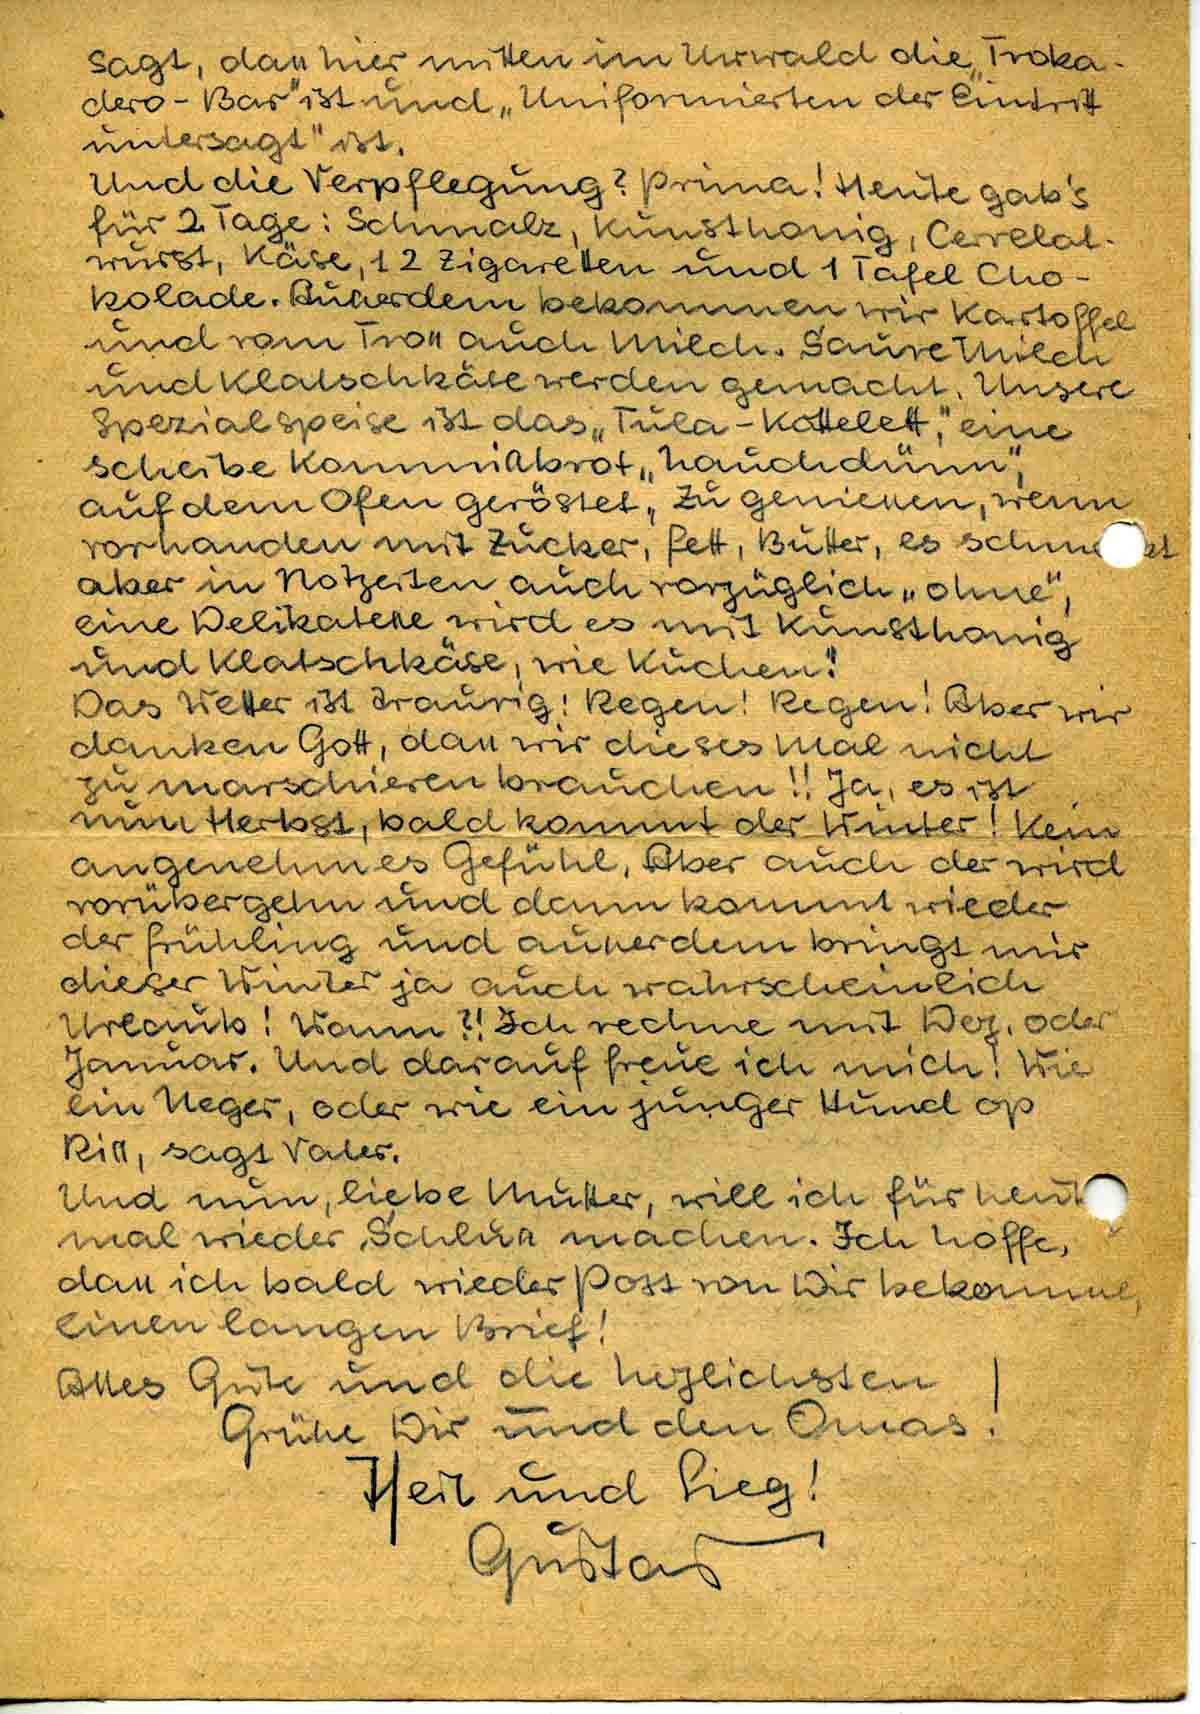 sagt, daß hier mitten im Urwald die „Troka-
dero-Bar" ist und „Uniformierten der Eintritt
untersagt" ist.
Und die Verpflegung? Prima! Heute gab's
für 2 Tage: Schmalz, Kunsthonig, Cervelat-
wurst, Käse, 12 Zigaretten und 1 Tafel Cho-
kolade. Außerdem bekommen wir Kartoffel
und vom Troß auch Milch. Saure Milch
und Klatschkäse werden gemacht. Unsere
Spezialspeise ist das „Tula-Kottelett", eine
scheibe Kommißbrot „hauchdünn",
auf dem Ofen geröstet, zu genießen, wenn
vorhanden mit Zucker, Fett, Butter, es schm kt
aber in Notzeiten auch vorzüglich „ohne",
eine Delikateße wird es mit Kunsthonig
und Klatschkäse, „wie Kuchen"!
Das Wetter ist traurig! Regen! Regen! Aber wir
danken Gott, daß wir dieses Mal nicht
zu marschieren brauchen!! Ja, es ist
nun Herbst, bald kommt der Winter! Kein
angenehmes Gefühl. Aber auch der wird
vorübergehn und dann kommt wieder
der Frühling und außerdem bringt mir
dieser Winter ja auch wahrscheinlich
Urlaub! Wann?!! Ich rechne mit Dez. oder
Januar. Und darauf freue ich mich! Wie
ein Neger, oder wie ein junger Hund op
Riß, sagt Vater.
Und nun, liebe Mutter, will ich für heut
mal wieder Schluß machen. Ich hoffe,
daß ich bald wieder Post von Dir bekomme,
einen langen Brief!
Alles Gute und die herzlichsten
Grüße Dir und den Omas!
Heil und Sieg!
Gustav